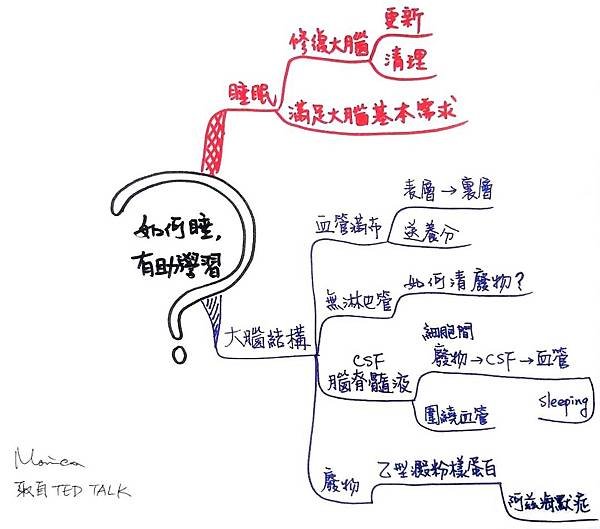 更新
修復大腦
清理
睡眠
滿足大腦基本需求
如何睡,
有助學習
表層→裏層
血管滿布
送養分
如何清廢物?
無淋巴管
大腦結構
細胞間
CSF
廢物→CSF→血管
腦脊髓液
sleeping
圍繞血管
乙型澱粉樣蛋白
廢物
阿茲海默症
Monica
取自TED TALK